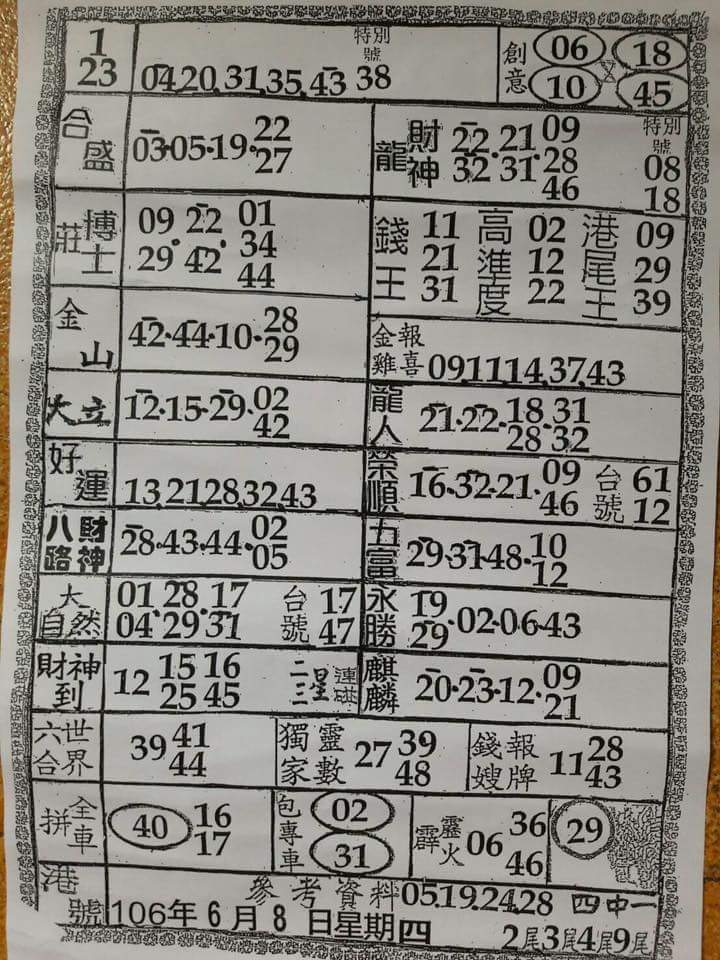 1
23
04.20.31.35.43
特別號
38
創意
06 18
10 45
合盛
03·05·19·22
27
龍財神
22.21.09
32 31 28
46
特別號
08
18
莊博士
09 22 01
29 42 34
44
錢王
11
21
31
高準度
02
12
22
港尾王
09
29
39
金山
42·44·10·28
29
金雞報喜
09.11.14.37.43
大立
12·15·29·02
42
龍人
21·22·18.31
28.32
好運
13.21.28.32.43
榮順
16·32·21·09
46
台號
61
12
八路財神
28·43·44·02
05
五富
29·31·48·10
12
大自然
01.28.17
04 29 31
台號
17
47
永勝
19
29·02·06·43
財神到
12 15 16
25 45
二三星連碰
麒麟
20·23·12·09
21
六合世界
39 41
44
獨家靈數
27 39
48
錢嫂報牌
11 28
43
全車拼
40 16
17
包專車
02
31
霹靂火
06 36
46
29
港號
參考資料
05.19.24.28 四中一
106年6月8日星期四
2尾3尾4尾9尾